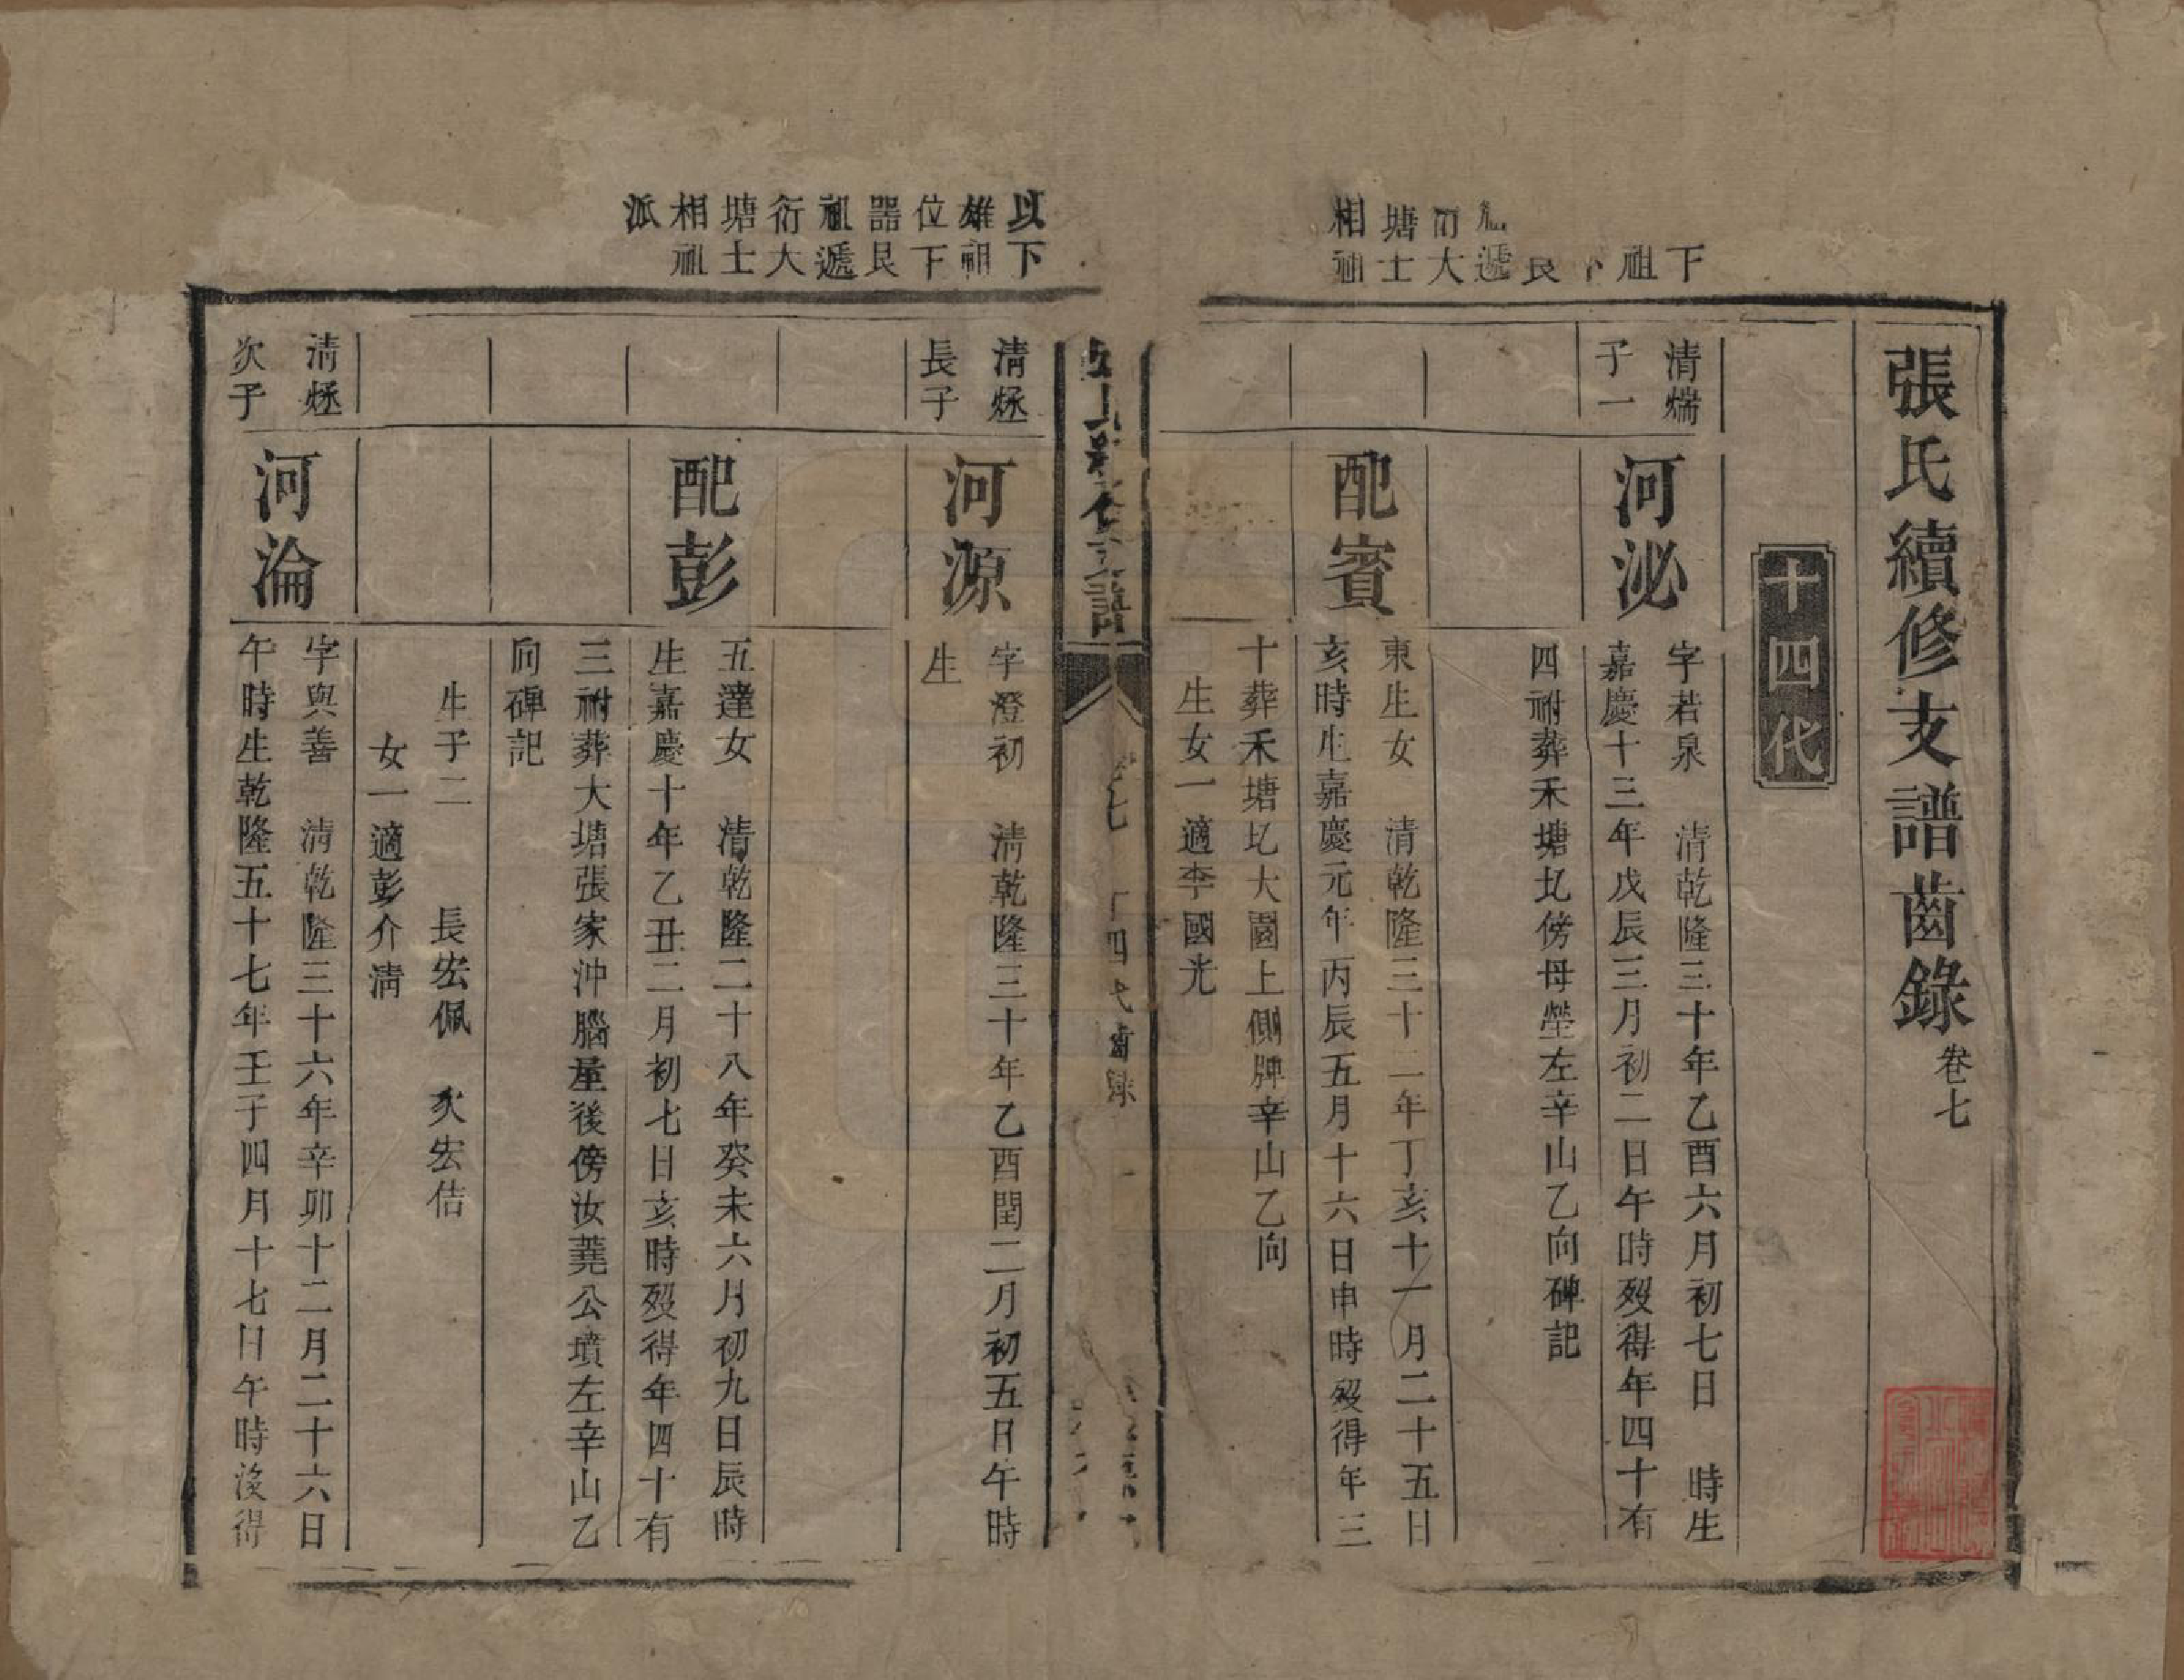 張氏續修支譜齒錄卷七
十四代
下
祖
良
遞
衍大
塘士
相祖
清煓
子一
河泌
字若泉　清乾隆三十年乙酉六月初七日　時生
嘉慶十三年戊辰三月初二日午時歿得年四十有
四祔葬禾塘圠傍母塋左辛山乙向碑記
配賓
東生女　清乾隆三十二年丁亥十一月二十五日
亥時生嘉慶元年丙辰五月十六日申時歿得年三
十葬禾塘圠大園上側牌辛山乙向
生女一適李國光
譜
七
十四代齒錄
一
以下
雄祖
位下
器良
祖遞
衍大
塘士
相祖
派
清烝
長子
河源
字澄初　清乾隆三十年乙酉閏二月初五日午時
生
配彭
五達女　清乾隆二十八年癸未六月初九日辰時
生嘉慶十年乙丑二月初七日亥時歿得年四十有
三祔葬大塘張家沖腦屋後傍汝蕘公墳左辛山乙
向碑記
生子二　長宏佩　次宏佶
女一適彭介清
清烝
次子
河淪
字與善　清乾隆三十六年辛卯十二月二十六日
午時生乾隆五十七年壬子四月十七日午時沒得